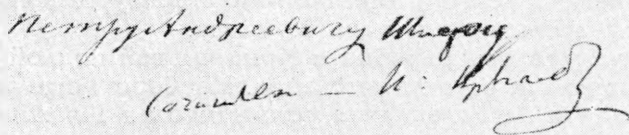 Петру Андреевичу
Сочинитель — И: Крылов